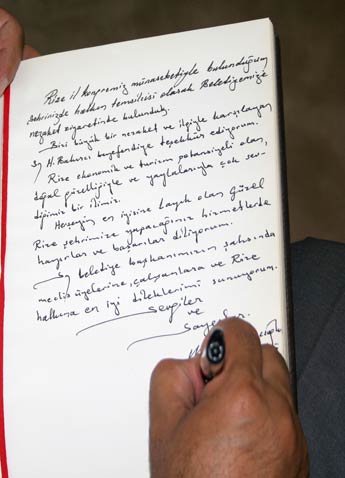 Rize il kongremiz münasebetiyle bulunduğum
şehrinizde halkın temsilcisi olarak Belediyemize
nezaket ziyaretinde bulunduk.
Bizi büyük bir nezaket ve ilgiyle karşılayan
Sn H. Bakırcı beyefendiye teşekkür ediyorum.
Rize ekonomik ve turizm potansiyeli olan,
doğal güzelliğiyle ve yaylalarıyla çok sev-
diğimiz bir ilimiz.
Herşeyin en iyisine layık olan Güzel
Rize şehrimize yapacağınız hizmetlerde
hayırlar ve başarılar diliyorum.
Sn belediye başkanımızın şahsında
meclis üyelerine, çalışanlara ve Rize
halkına en iyi dileklerimi sunuyorum.
Sevgiler
ve
Saygılar.